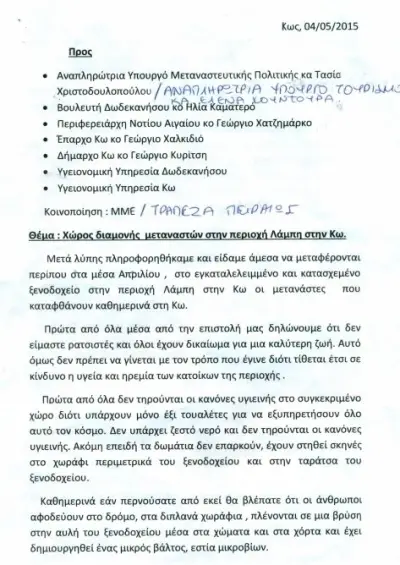 Κως, 04/05/2015
Προς
• Αναπληρώτρια Υπουργό Μεταναστευτικής Πολιτικής κα Τασία
Χριστοδουλοπούλου / ΑΝΑΠΛΗΡΩΤΡΙΑ ΥΠΟΥΡΓΟ ΤΟΥΡΙΣΜΟΥ
ΚΑ ΕΛΕΝΑ ΚΟΥΝΤΟΥΡΑ
• Βουλευτή Δωδεκανήσου κο Ηλία Καματερό
• Περιφερειάρχη Νοτίου Αιγαίου κο Γεώργιο Χατζημάρκο
• Έπαρχο Κω κο Γεώργιο Χαλκιδιό
• Δήμαρχο Κω κο Γεώργιο Κυρίτση
• Υγειονομική Υπηρεσία Δωδεκανήσου
• Υγειονομική Υπηρεσία Κω
Κοινοποίηση : ΜΜΕ / ΤΡΑΠΕΖΑ ΠΕΙΡΑΙΩΣ
Θέμα : Χώρος διαμονής μεταναστών στην περιοχή Λάμπη στην Κω.
Μετά λύπης πληροφορηθήκαμε και είδαμε άμεσα να μεταφέρονται
περίπου στα μέσα Απριλίου , στο εγκαταλελειμμένο και κατασχεμένο
ξενοδοχείο στην περιοχή Λάμπη στην Κω οι μετανάστες που
καταφθάνουν καθημερινά στη Κω.
Πρώτα από όλα μέσα από την επιστολή μας δηλώνουμε ότι δεν
είμαστε ρατσιστές και όλοι έχουν δικαίωμα για μια καλύτερη ζωή. Αυτό
όμως δεν πρέπει να γίνεται με τον τρόπο που έγινε διότι τίθεται έτσι σε
κίνδυνο η υγεία και ηρεμία των κατοίκων της περιοχής .
Πρώτα από όλα δεν τηρούνται οι κανόνες υγιεινής στο συγκεκριμένο
χώρο διότι υπάρχουν μόνο έξι τουαλέτες για να εξυπηρετήσουν όλο
αυτό τον κόσμο. Δεν υπάρχει ζεστό νερό και δεν τηρούνται οι κανόνες
υγιεινής. Ακόμη επειδή τα δωμάτια δεν επαρκούν, έχουν στηθεί σκηνές
στο χωράφι περιμετρικά του ξενοδοχείου και στην ταράτσα του
ξενοδοχείου.
Καθημερινά εάν περνούσατε από εκεί θα βλέπατε ότι οι άνθρωποι
αφοδεύουν στο δρόμο, στα διπλανά χωράφια , πλένονται σε μια βρύση
στην αυλή του ξενοδοχείου μέσα στα χώματα και στα χόρτα και έχει
δημιουργηθεί ένας μικρός βάλτος, εστία μικροβίων.